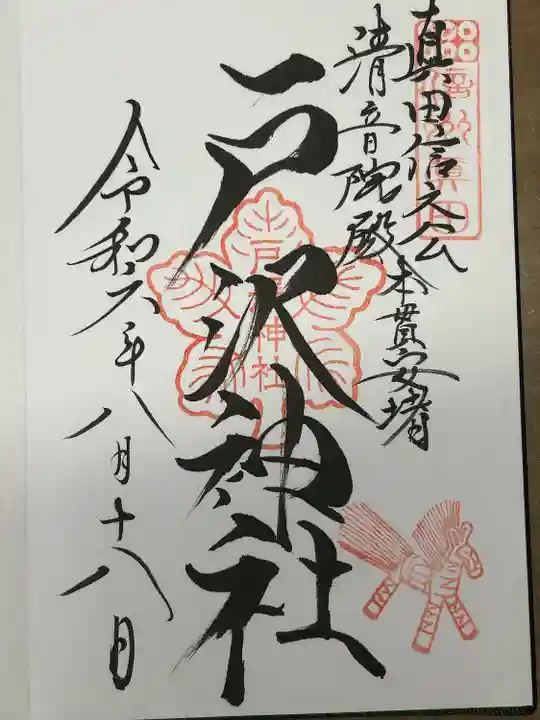 真田信之公
清音院殿
本貫安堵
戸沢神社
令和六年八月十八日
戸沢神社